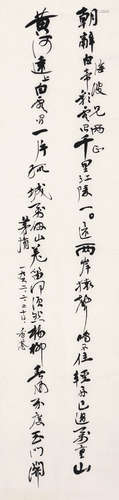 朝辭白帝彩雲間千里江陵一日還兩岸猿聲啼不住輕舟已過萬重山
波兄 正
黃河遠上白雲間一片孤城萬仞山羌笛何須怨楊柳春風不度玉門關
茅盾
一九六二